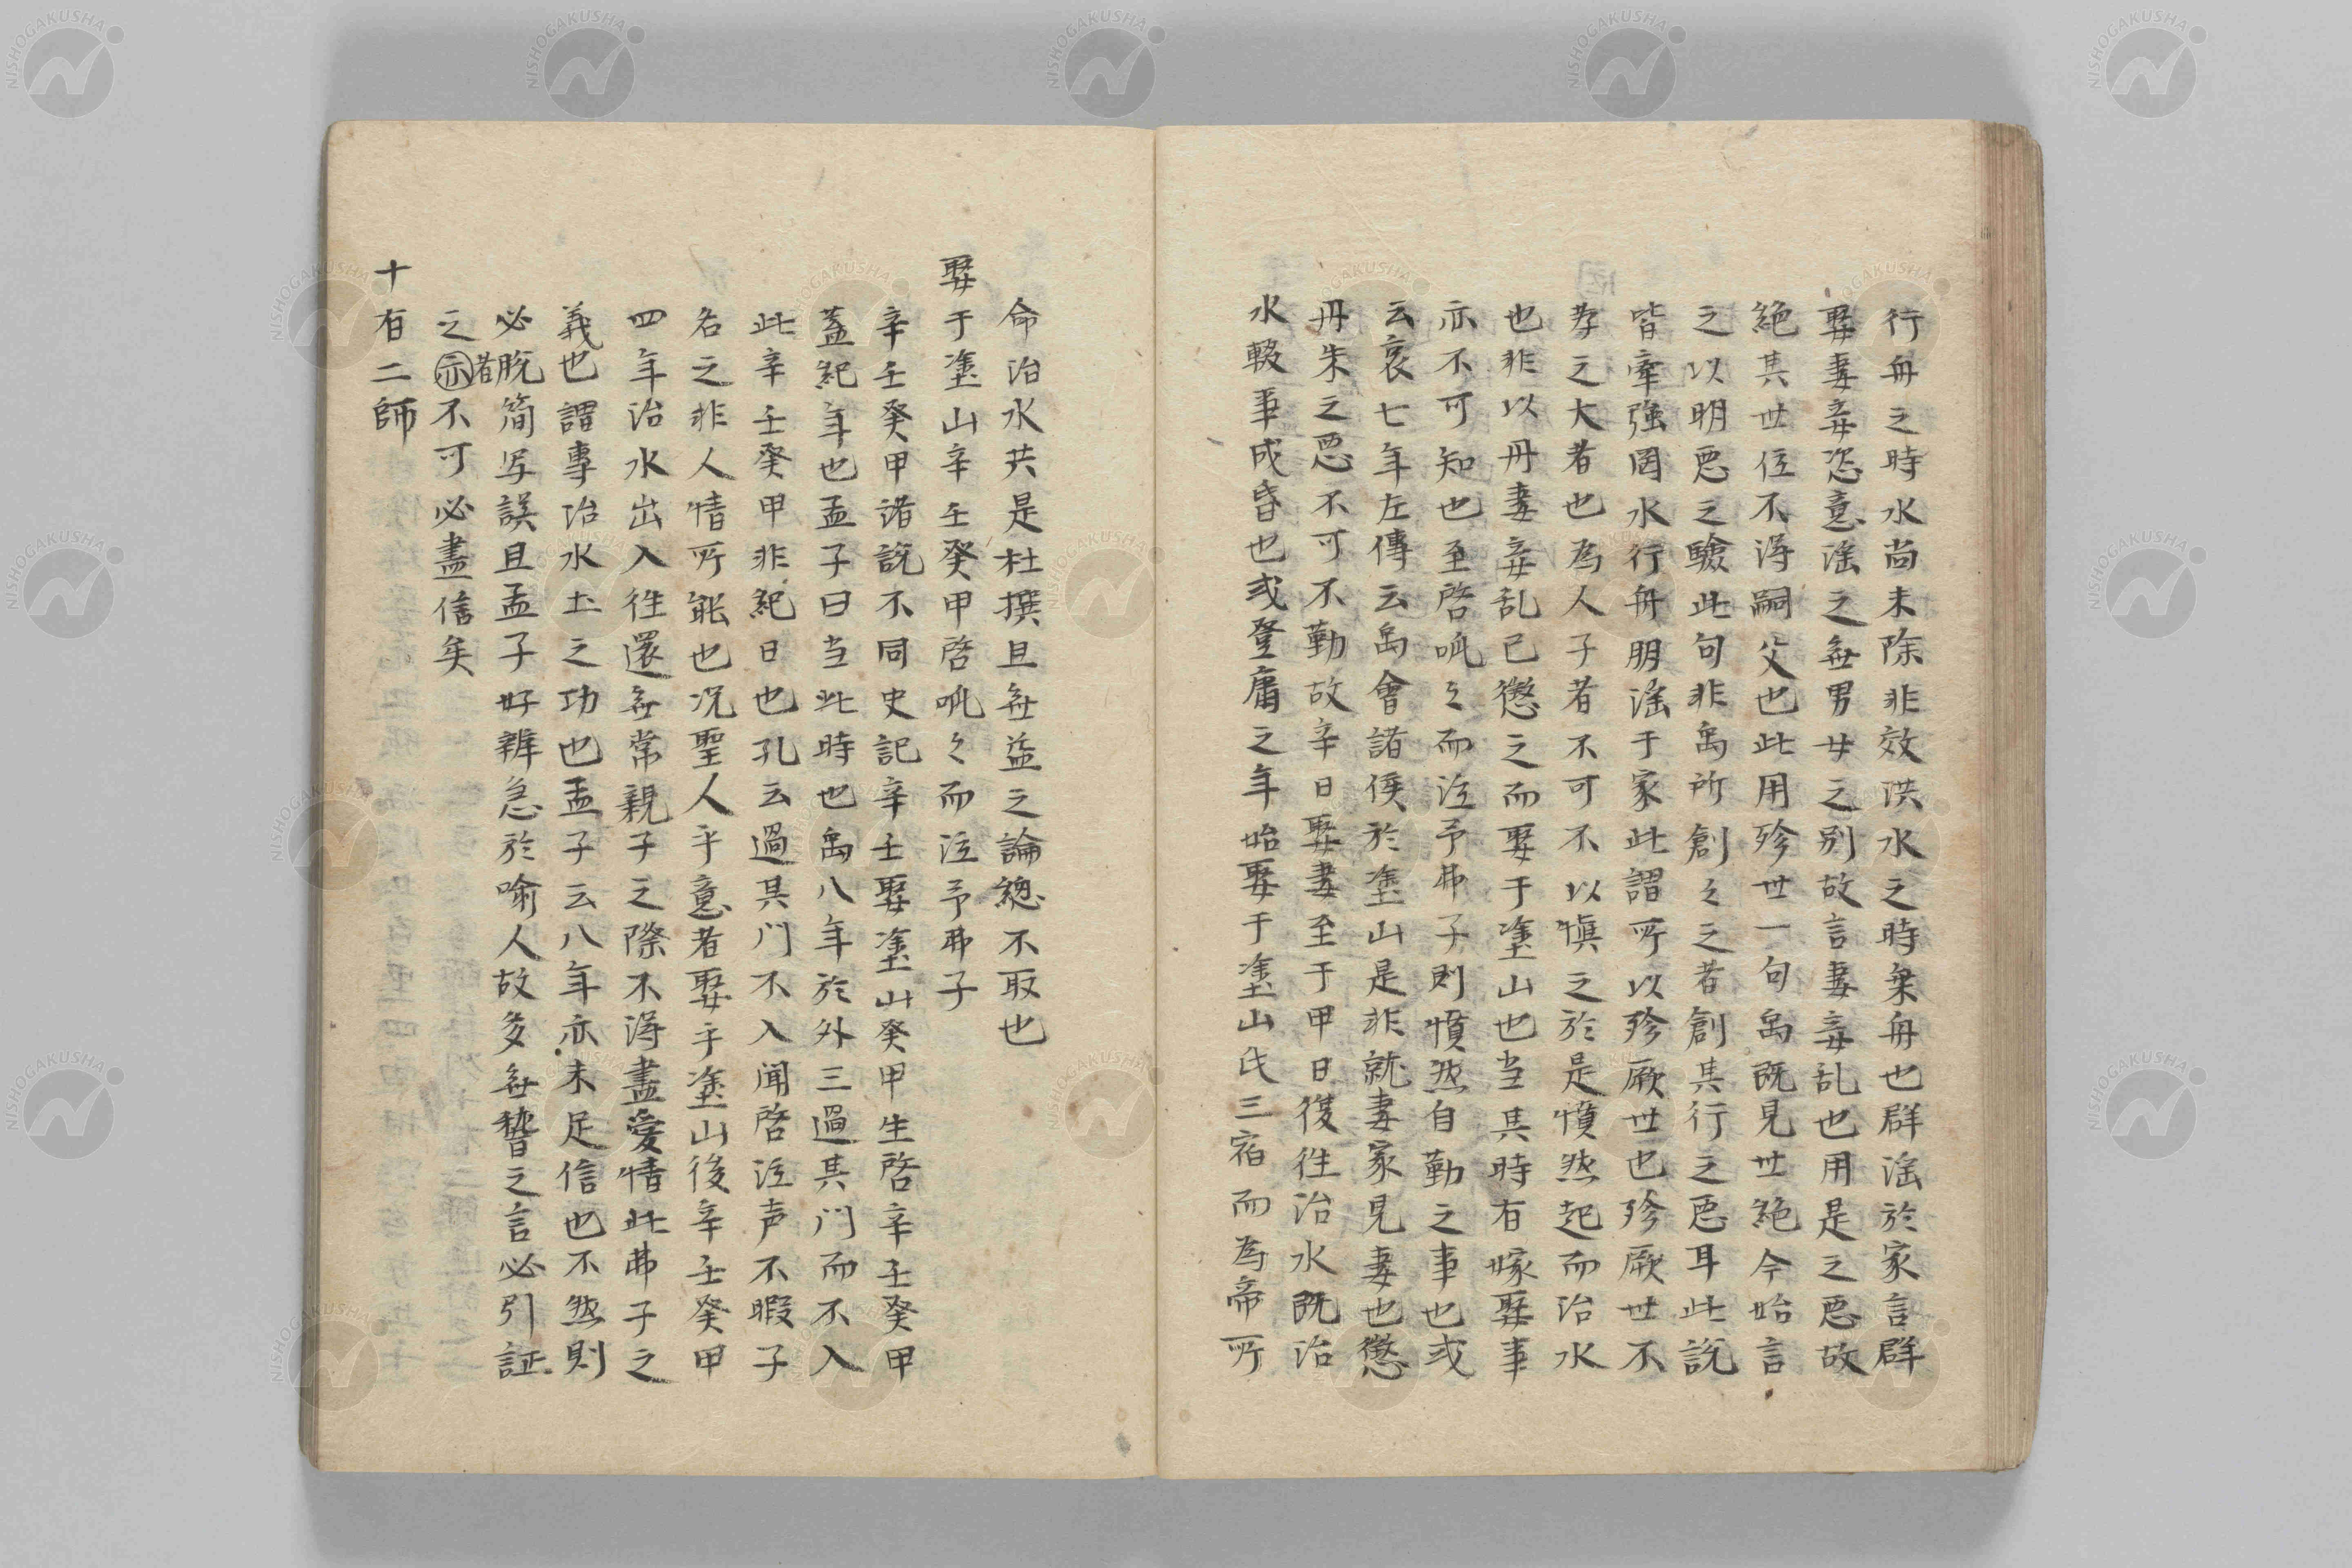 行舟之時水尚未除非效洪水之時乗舟也群滛於家言群
娶妻妾恣意滛之無男女之别故言妻妾乱也用是之悪故
絶其世位不得嗣父也此用殄世一句禹既見世絶今始言
之以明悪之驗此句非禹所創々之者創其行之悪耳此説
皆牽強罔水行舟朋滛于家此謂所以殄厥世也殄厥世不
孝之大者也為人子者不可不以慎之於是憤然起而治水
也非以丹妻妾乱已懲之而娶于塗山也当其時有嫁娶事
亦不可知也至啓呱々而泣予弗子則憤然自勤之事也或
云哀七年左傳云禹會諸侯於塗山是非就妻家見妻也懲
丹朱之悪不可不勤故辛日娶妻至于甲日復往治水既治
水輟事成昏也或登庸之年始娶于塗山氏三宿而為帝所
命治水共是杜撰且無益之論總不取也
娶于塗山辛壬癸甲啓呱々而泣予弗子
辛壬癸甲諸説不同史記辛壬娶塗山癸甲生啓辛壬癸甲
蓋紀年也孟子曰当此時也禹八年於外三過其門而不入
此辛壬癸甲非紀日也孔云過其门不入闻啓泣声不暇子
名之非人情所能也况聖人乎意者娶乎塗山後辛壬癸甲
四年治水出入往還無常親子之際不得盡愛情此弗子之
義也謂專治水土之功也孟子云八年亦未足信也不然則
必脱简写誤且孟子好辨急於喻人故多無替之言必引証
之亦者不可必盡信矣
十有二師